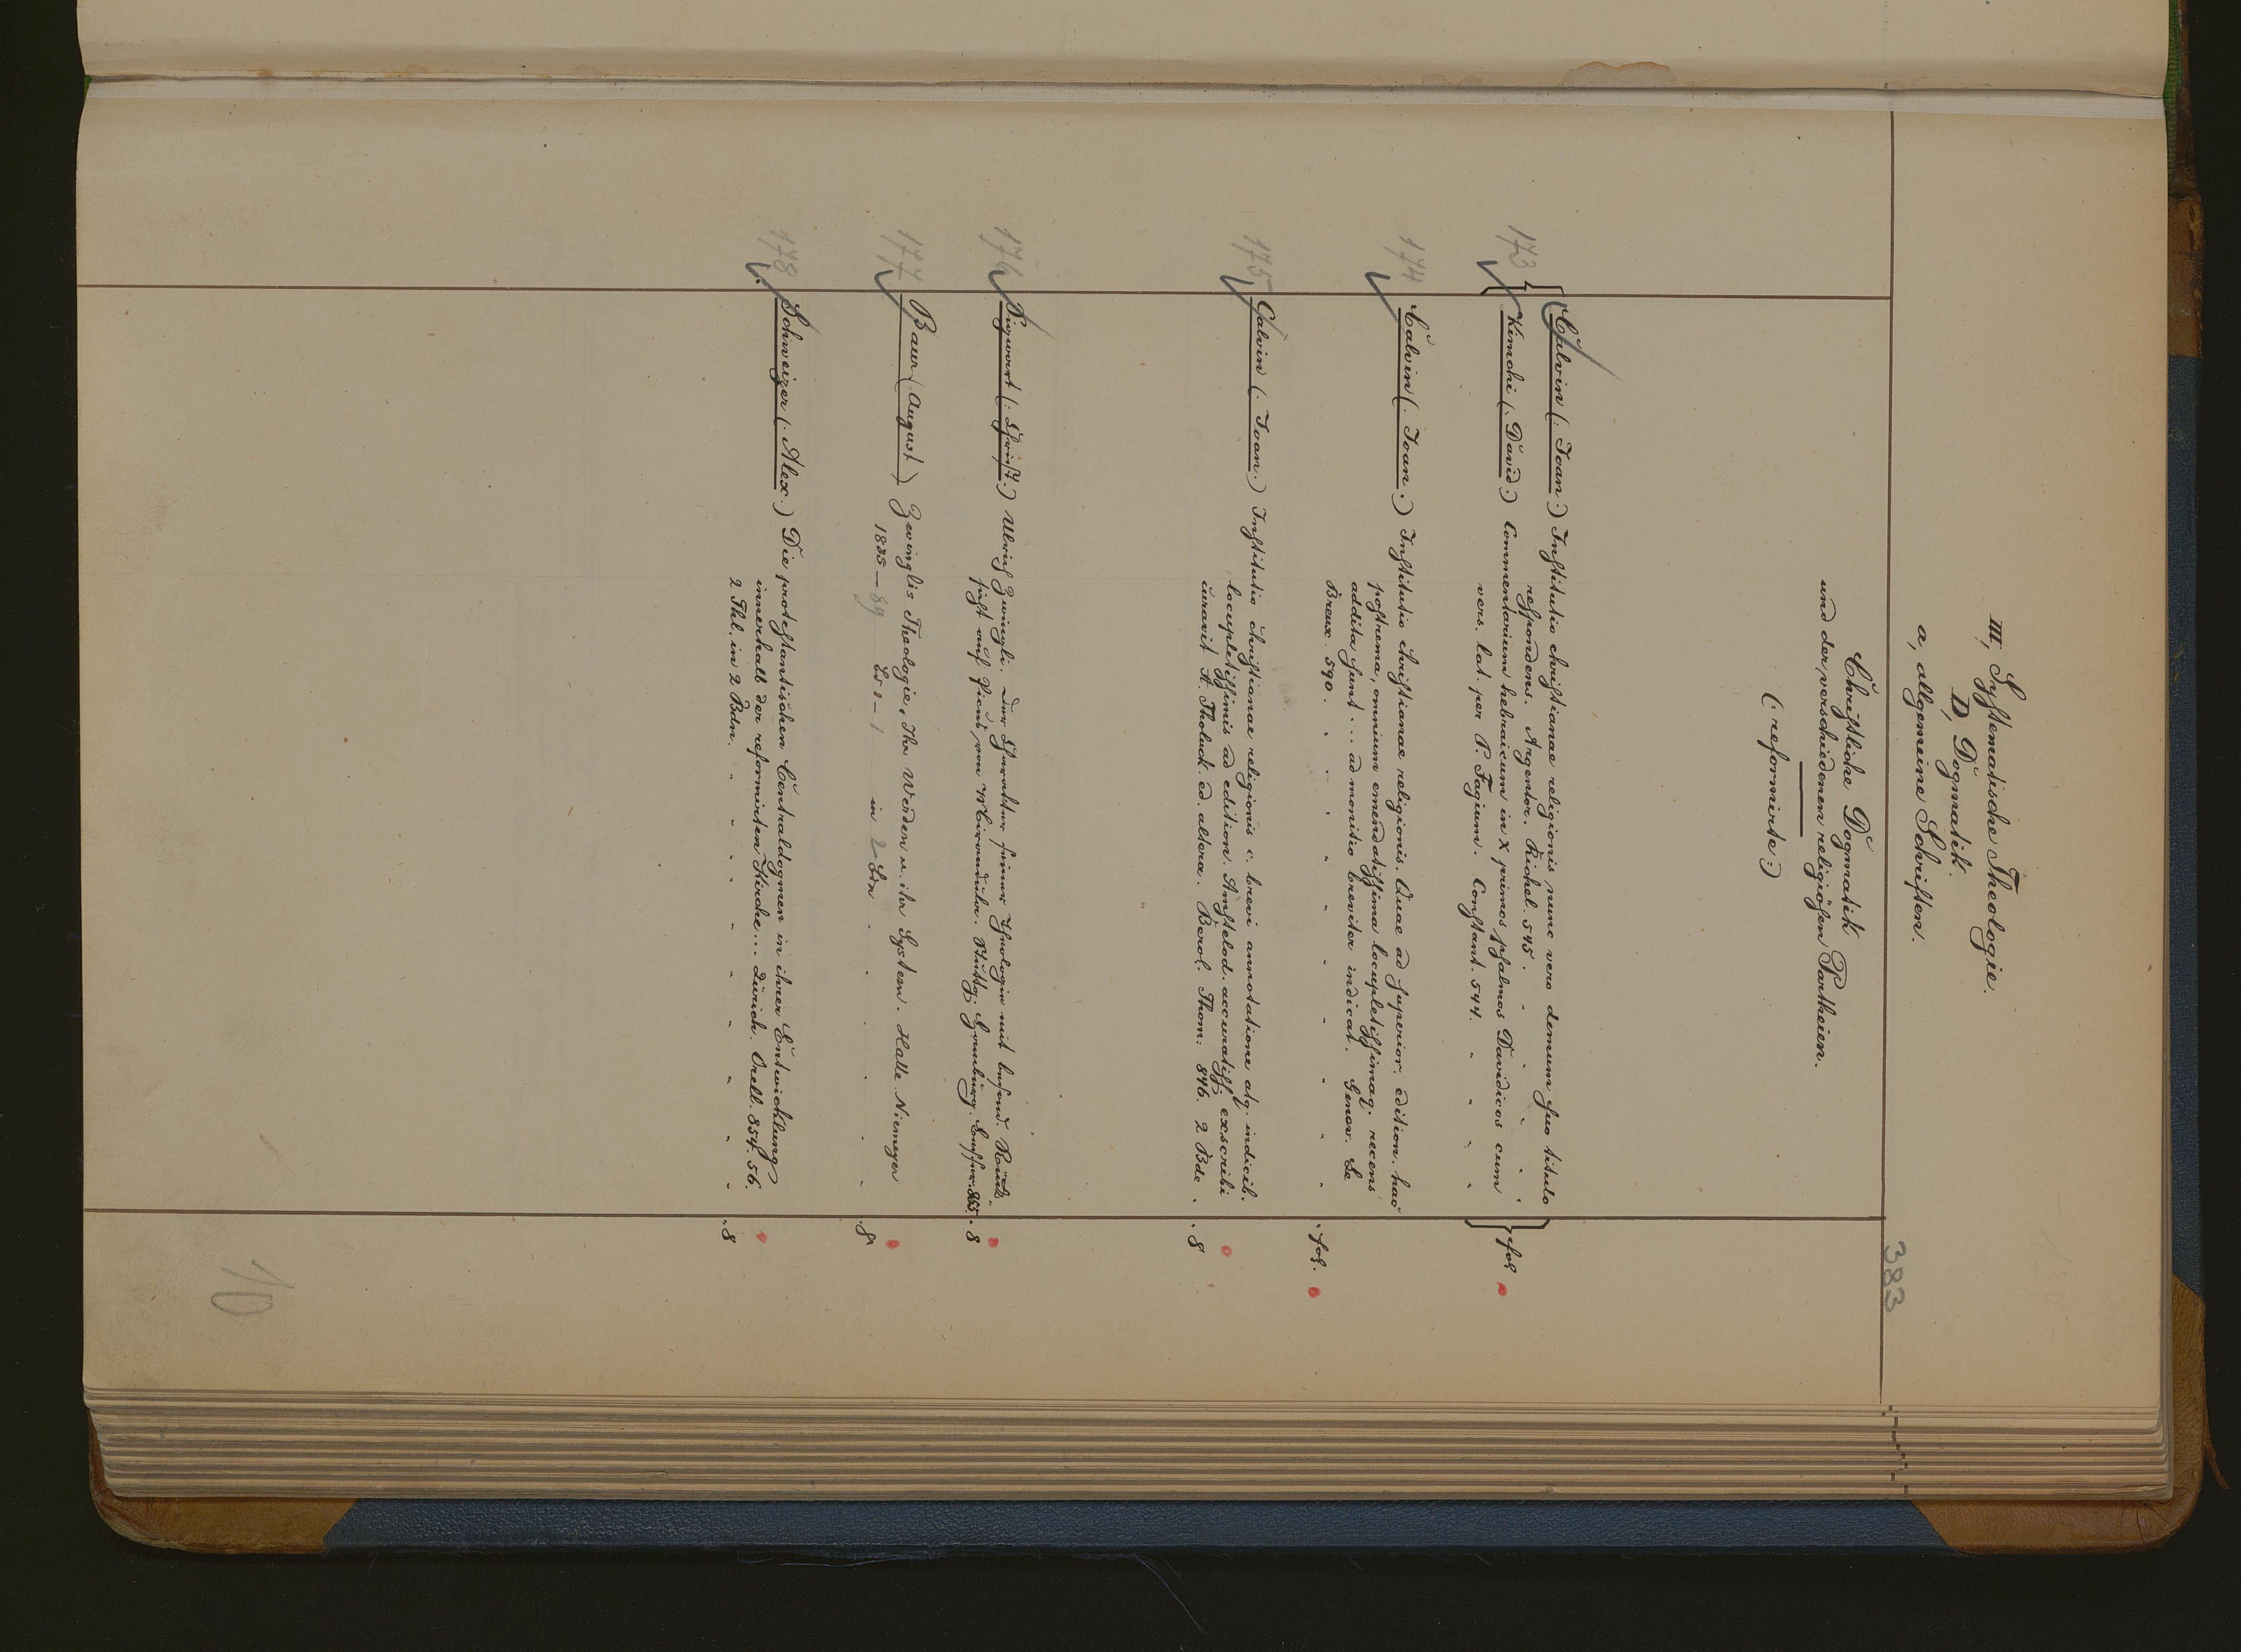 III, Systematische Theologie.
D, Dogmatik.
a, allgemeine Schriften.
383
Christliche Dogmatik
und der verschiedenen religiösen Partheien.
(: reformirte :)
173 Calvin (: Joan :) Institutio christianae religionis nunc vero demum suo titulo
respondens. Argentor. Richel. 545.
Kimchi (: David :) Commentarium hebraicum in X primos psalmos Davidicos cum
vers. lat. per P. Fagium. Constant. 544. fol
174 Calvin (: Joan :) Institutio christianae religionis. Quae ad superior. edition. hac
postrema, omnium emendatissima locupletissimaq. recens
addita sunt ... ad monitio breviter indicat. Genev. Le
Breux. 590. fol.
175 Calvin (: Joan.) Institutio christianae religionis c. brevi annotatione atq. indicib.
locupletissimis ad edition. Amstelod. accuratiss. exscribi
curavit A. Tholuck. ed. altera. Berol. Thom: 846. 2 Bde. 8
176 Sigwart (: Christ :) Ulrich Zwingli. Der Charakter seiner Theologie mit besond. Rück-
sicht auf Picus von Mirandula. Stuttg. Hamburg. Besser. 855. 8
177 Baur (August) Zwinglis Theologie, Ihr Werden u. ihr System. Halle. Niemeyer
1885–89 in 2 Bdn. 8
178 Schweizer (: Alex :) Die protestantischen Centraldogmen in ihrer Entwicklung
innerhalb der reformirten Kirche ... Zürich. Orell. 854. 56.
2 Thl. in 2 Bdn. 8
10